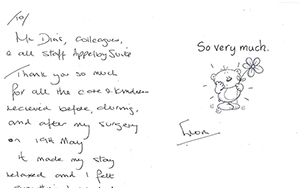 To/
Mr Dias, Colleagues,
& all staff Appleby Suite
Thank you so much
for all the care & kindness
received before, during,
and after my surgery
on 19th May
it made my stay
relaxed and I felt
So very much.
From